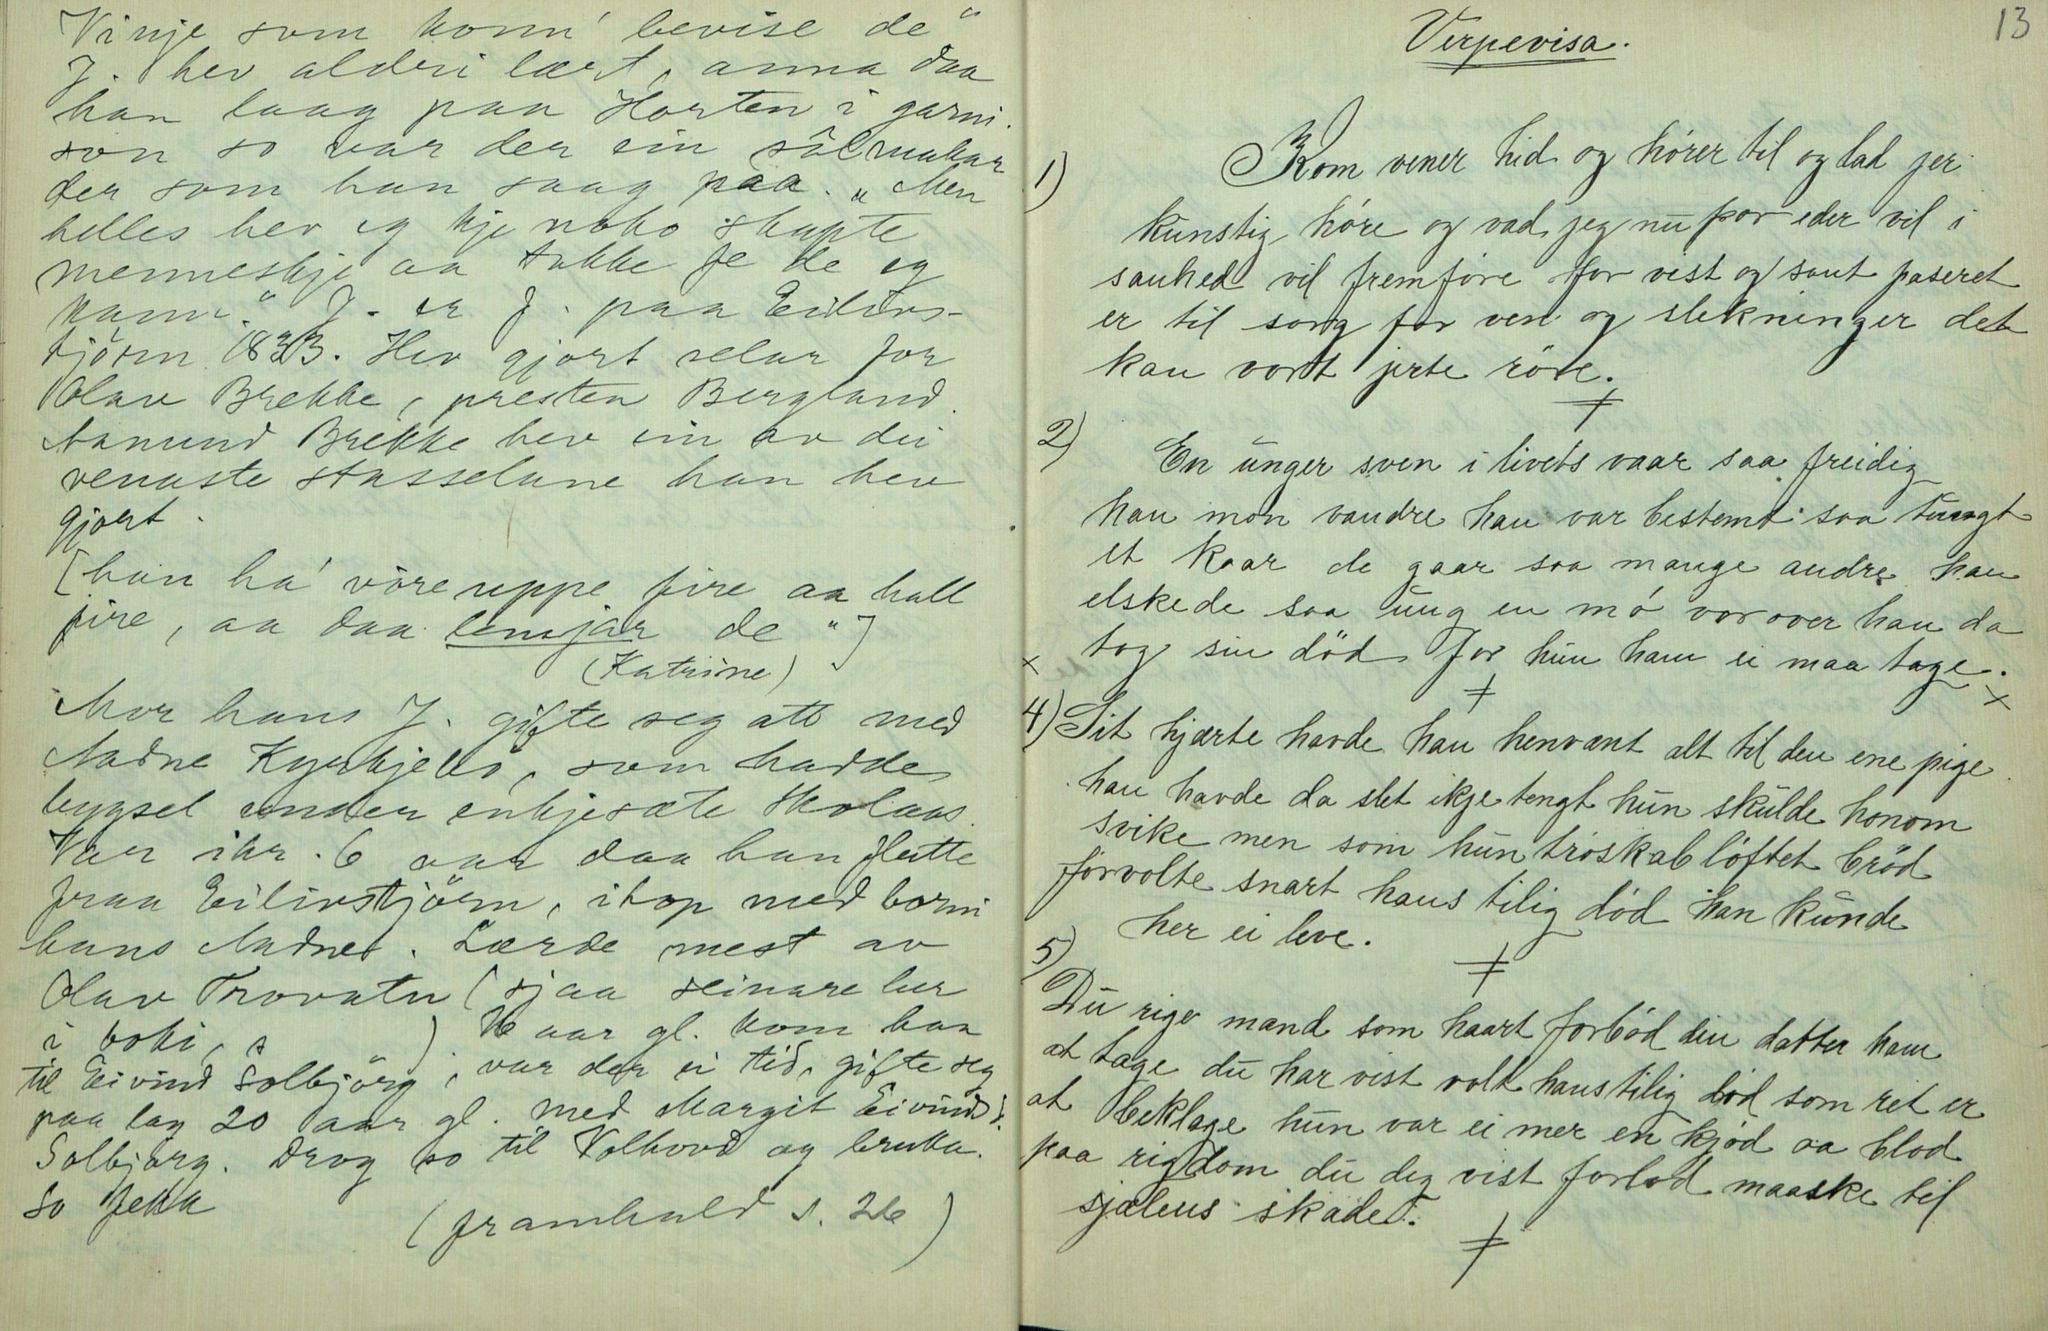 Vinje som konn' bevise de"
J. hev aldri lært, anna daa
han laag paa Horten i garni-
son so var der ein sålmakar
der som han saag paa. „Men
helles hev eg kje noko skapte
menneskje aa takke fe de eg
kann." J. er f. paa Eilivs-
tjörn 1833. Hev gjort selar for
Olav Brekke, presten Bergland.
Aanund Brekke hev ein av dei
venaste stasselane han hev
gjort.
[han ha' vöre uppe fire aa hall
fire, aa daa lensjar de"]
(Katrine)
Mor hans J. gifte seg att med
Aadne Kyrkjebö, som hadde
bygsel under enkjesæte Skolaas.
Var ikr. 6 aar daa han flutte
fraa Eilivstjörn, ihop med borni
hans Aadnes. Lærde mest av
Olav Trovatn (sjaa seinare her
i boki, s ) 16 aar gl. kom han
til Eivind Solbjörg, var der ei tid, gifte seg
paa lag 20 aar gl. med Margit Eivindsd.
Solbjørg. Drog so til Volhovd og bruka.
So fekk
(framhald s. 26)
13
Verpevisa.
1) Kom vener hid og hører til og lad jer
kunstig høre og vad jeg nu for eder vil i
sanhed vil fremføre for vist og sant paseret
er til sorg for ven og slekninger det
kan vort jerte röre.
2) En unger sven i livets vaar saa freidig
han mon vandre han var bestemt saa tungt
et kaar de gaar saa mange andre han
elskede saa ung en mø vorover han da
tog sin död for hun ham ei maa tage.
4) Sit hjærte havde han henvænt alt til den ene pige
han havde da slet ikje tengt hun skulde honom
svike men som hun troskab löftet bröd
forvolte snart hans tilig död han kunde
her ei leve.
5)
Du rige mand som haart forböd din datter ham
at tage du har vist volt hans tilig död som ret er
at beklage hun var ei mer en kjød aa blod
paa rigdom du deg vist forlod maaske til
sjælens skade.